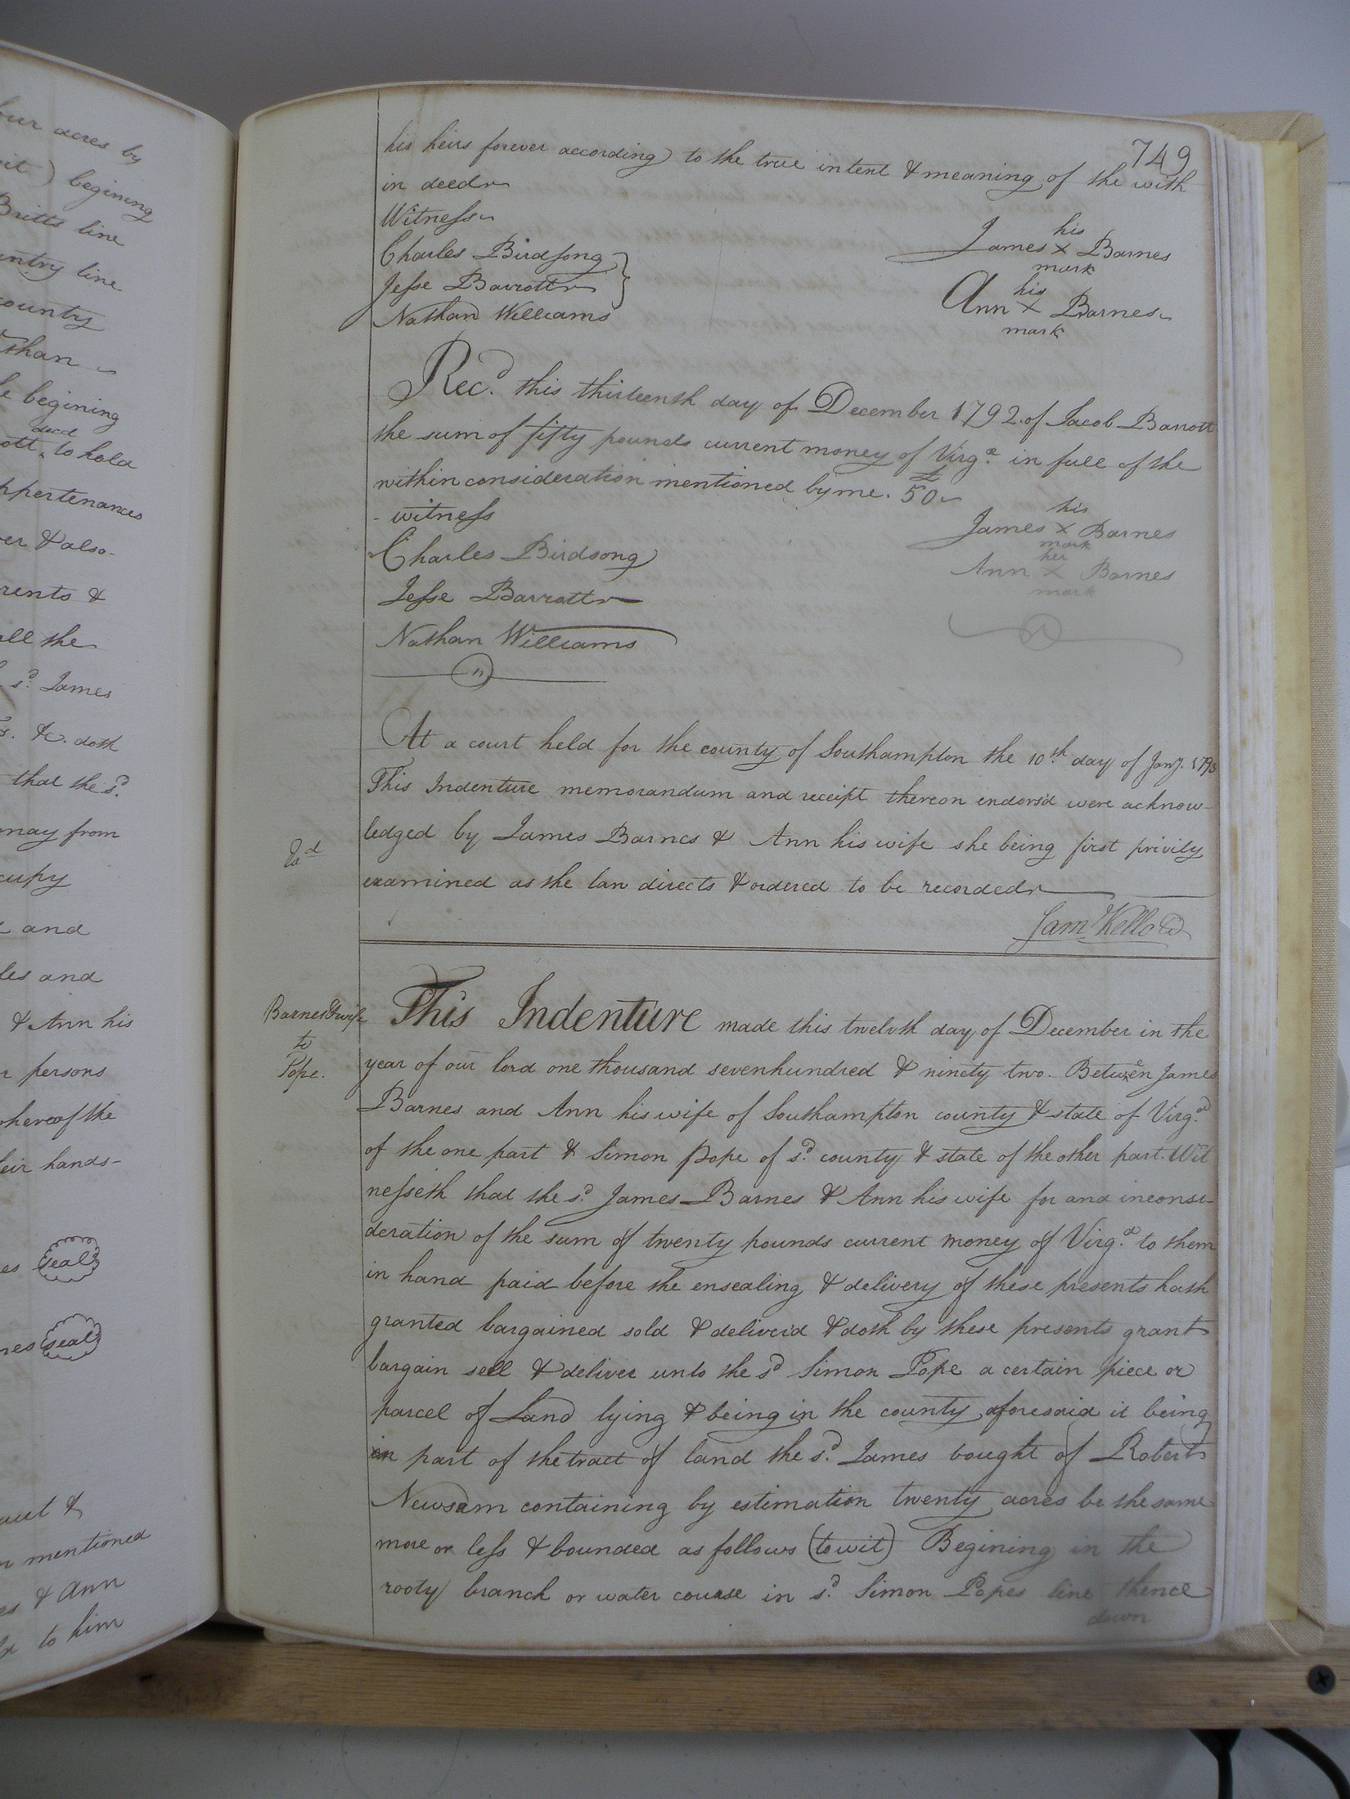 our acres by
wit) begining
Britts line
country line
county
than
e begining
decd
ott, to hold
ppertenances
er & also
rents &
all the
sd. James
s. &c. doth
that the sd.
may from
cupy
and
les and
& Ann his
r persons
whereof the
eir hands-
es seal
nes seal
n mentioned
es & Ann
to him
749
his heirs forever according to the true intent & meaning of the with
in deed
Witness
Charles Birdsong
Jesse Barrott
Nathan Williams
his
James x Barnes
mark
his
Ann x Barnes
mark
Recd. this thirteenth day of December 1792. of Jacob Barrott
the sum of fifty pounds current money of Virga. in full of the
within consideration mentioned by me. £50
witness
Charles Birdsong
Jesse Barrott
Nathan Williams
his
James x Barnes
mark
her
Ann x Barnes
mark
At a court held for the county of Southampton the 10th day of Jany. 1793
This Indenture memorandum and receipt thereon endorsd were acknow-
ledged by James Barnes & Ann his wife she being first privily
examined as the law directs & ordered to be recorded
Saml Kello
Barnes & wife
to
Pope.
This Indenture made this twelvth day of December in the
year of our lord one thousand sevenhundred & ninety two. Between James
Barnes and Ann his wife of Southampton county & state of Virga.
of the one part & Simon pope of sd. county & state of the other part. Wit
nesseth that the sd. James Barnes & Ann his wife for and inconsi-
deration of the sum of twenty pounds current money of Virga. to them
in hand paid before the ensealing & delivery of these presents hath
granted bargained sold & deliverd & doth by these presents grant
bargain sell & deliver unto the sd Simon Pope a certain piece or
parcel of Land lying & being in the county aforesaid it being
in part of the tract of land the sd. James bought of Robert
Newsom containing by estimation twenty acres be the same
more or less & bounded as follows (to wit) Begining in the
rooty branch or water course in sd. Simon Popes line thence
down